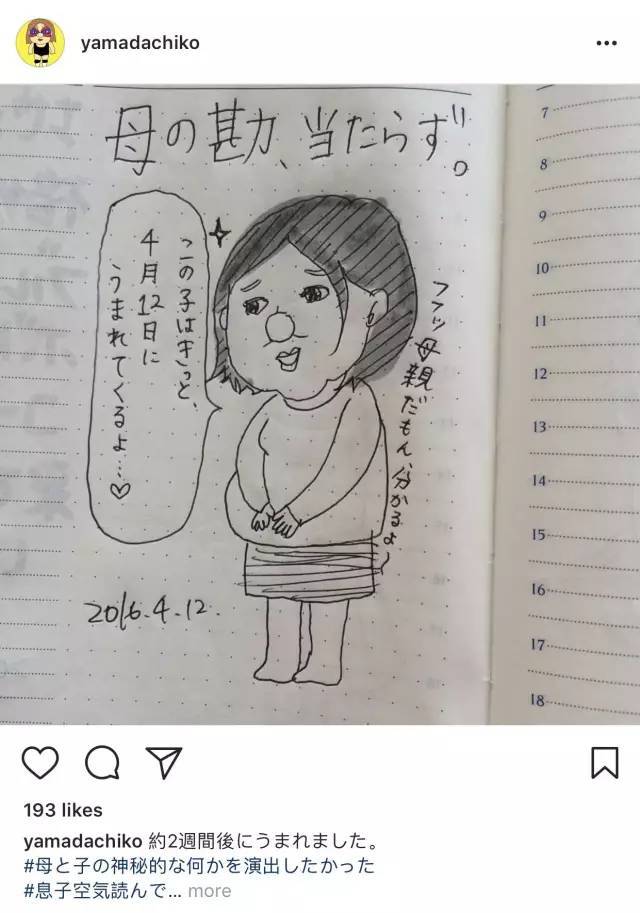 yamadachiko
母の勘、当たらず。
この子はきっと、
4月12日に
うまれてくるよ…♡
フフッ母親だもん、分かるよ
2016.4.12.
7
8
9
10
11
12
13
14
15
16
17
18
193 likes
yamadachiko 約2週間後にうまれました。
#母と子の神秘的な何かを演出したかった
#息子空気読んで... more